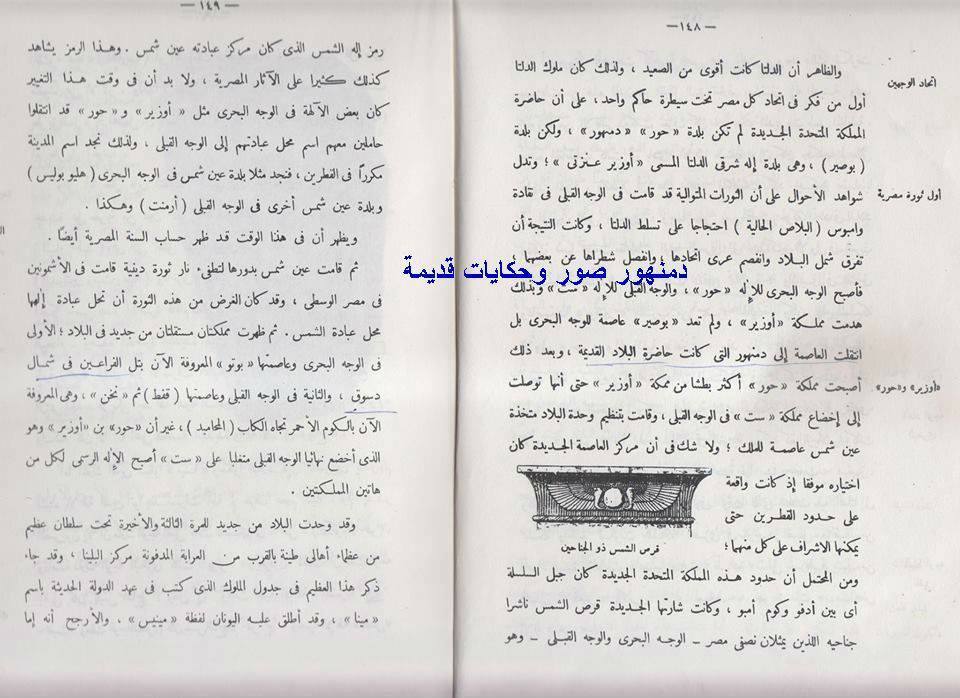 — ١٤٨ —
اتحاد الوجهين
والظاهر أن الدلتا كانت أقوى من الصعيد ، ولذلك كان ملوك الدلتا
أول من فكر فى اتحاد كل مصر تحت سيطرة حاكم واحد، على أن حاضرة
المملكة المتحدة الجديدة لم تكن بلدة « حور » « دمنهور » ، ولكن بلدة
( بوصير ) ، وهى بلدة إله شرقى الدلتا المسمى « أوزير عنزتى » ؛ وتدل
أول ثورة مصرية
شواهد الأحوال على أن الثورات المتوالية قد قامت فى الوجه القبلى فى نقادة
وامبوس ( البلاص الحالية ) احتجاجا على تسلط الدلتا ، وكانت النتيجة أن
تفرق شمل البلاد وانفصم عرى اتحادها ؛ وانفصل شطراها عن بعضهما ،
فأصبح الوجه البحرى للإله « حور » ، والوجه القبلى للإله « ست » وبذلك
هدمت مملكة « أوزير » ، ولم تعد « بوصير » عاصمة للوجه البحرى بل
انتقلت العاصمة إلى دمنهور التى كانت حاضرة البلاد القديمة ، وبعد ذلك
«أوزير» و«حور»
أصبحت مملكة « حور » أكثر بطشا من ممكة « أوزير » حتى أنها توصلت
إلى إخضاع مملكة « ست » فى الوجه القبلى ، وقامت بتنظيم وحدة البلاد متخذة
عين شمس عاصمة للملك ؛ ولا شك فى أن مركز العاصمة الجديدة كان
اختياره موفقا إذ كانت واقعة
على حدود القطرين حتى
يمكنها الاشراف على كل منهما ؛
قرص الشمس ذو الجناحين
ومن المحتمل أن حدود هذه المملكة المتحدة الجديدة كان جبل السلسلة
أى بين أدفو وكوم أمبو ، وكانت شارتها الجديدة قرص الشمس ناشرا
جناحيه اللذين يمثلان نصفى مصر ــ الوجه البحرى والوجه القبلى ــ وهو
— ١٤٩ —
رمز إله الشمس الذى كان مركز عبادته عين شمس . وهذا الرمز يشاهد
كذلك كثيرا على الآثار المصرية ، ولا بد أن فى وقت هذا التغيير
كان بعض الآلهة فى الوجه البحرى مثل « أوزير » و « حور » قد انتقلوا
حاملين معهم اسم محل عبادتهم إلى الوجه القبلى ، ولذلك نجد اسم المدينة
مكرراً فى القطرين ، فنجد مثلا بلدة عين شمس فى الوجه البحرى ( هليو بوليس )
وبلدة عين شمس أخرى فى الوجه القبلى ( أرمنت ) وهكذا .
ويظهر أن فى هذا الوقت قد ظهر حساب السنة المصرية أيضًا .
ثم قامت عين شمس بدورها لتطفىء نار ثورة دينية قامت فى الأشمونين
فى مصر الوسطى ، وقد كان الغرض من هذه الثورة أن تحل عبادة إلهها
محل عبادة الشمس . ثم ظهرت مملكتان مستقلتان من جديد فى البلاد ؛ الأولى
فى الوجه البحرى وعاصمتها « بوتو » المعروفة الآن بتل الفراعين فى شمال
دسوق ، والثانية فى الوجه القبلى وعاصمتها ( قفط ) ثم « نخن » ، وهى المعروفة
الآن بالكوم الأحمر تجاه الكاب ( المحاميد ) ، غير أن « حور » بن « أوزير » وهو
الذى أخضع نهائيا الوجه القبلى متغلبا على « ست » أصبح الإله الرسمى لكل من
هاتين المملكتين .
وقد وحدت البلاد من جديد للمرة الثالثة والأخيرة تحت سلطان عظيم
من عظماء أهالى طينة بالقرب من العرابة المدفونة مركز البلينا ، وقد جاء
ذكر هذا العظيم فى جدول الملوك الذى كتب فى عهد الدولة الحديثة باسم
« مينا » ، وقد أطلق عليه اليونان لفظة « مينيس » ، والأرجح أنه إما
دمنهور صور وحكايات قديمة